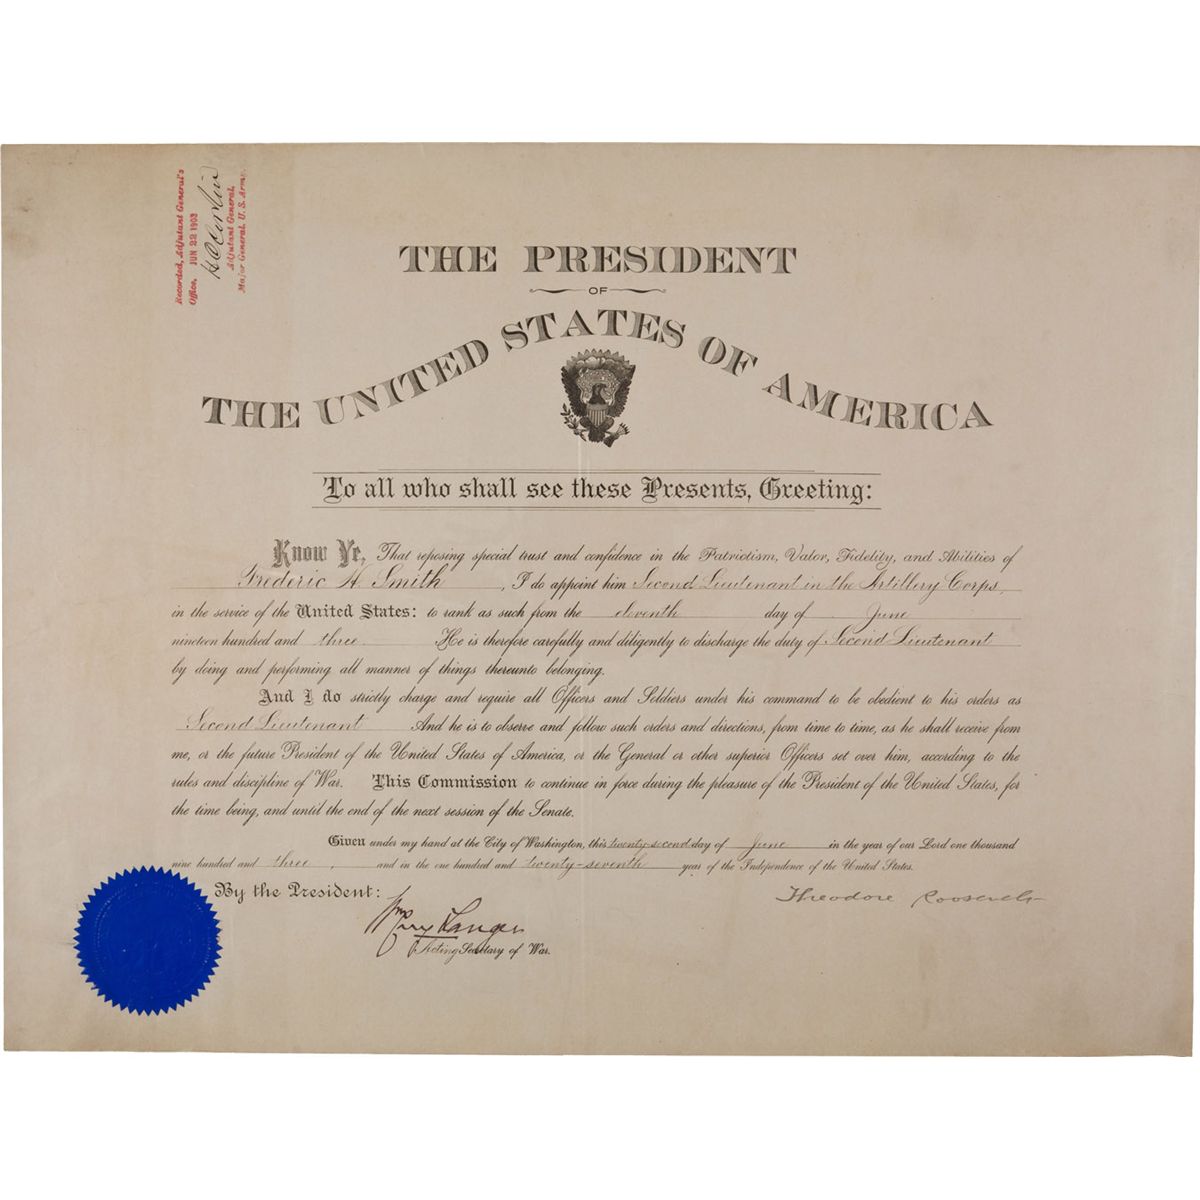 Recorded, Adjutant General's
Office, JUN 22 1903
H C Corbin
Adjutant General,
Major General, U. S. Army.
THE PRESIDENT
OF
THE UNITED STATES OF AMERICA
To all who shall see these Presents, Greeting:
Know Ye, That reposing special trust and confidence in the Patriotism, Valor, Fidelity, and Abilities of
Frederic H. Smith, I do appoint him Second Lieutenant in the Artillery Corps,
in the service of the United States: to rank as such from the eleventh day of June
nineteen hundred and three. He is therefore carefully and diligently to discharge the duty of Second Lieutenant
by doing and performing all manner of things thereunto belonging.
And I do strictly charge and require all Officers and Soldiers under his command to be obedient to his orders as
Second Lieutenant And he is to observe and follow such orders and directions, from time to time, as he shall receive from
me, or the future President of the United States of America, or the General or other superior Officers set over him, according to the
rules and discipline of War. This Commission to continue in force during the pleasure of the President of the United States, for
the time being, and until the end of the next session of the Senate.
Given under my hand at the City of Washington, this twenty-second day of June in the year of our Lord one thousand
nine hundred and three, and in the one hundred and twenty-seventh year of the Independence of the United States.
By the President:
Theodore Roosevelt
Wm Cary Sanger
Acting Secretary of War.